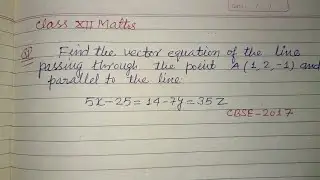 Class XII Maths
Q) Find the vector equation of the line
passing through the point A(1, 2, -1) and
parallel to the line
5x-25 = 14-7y = 35z
CBSE-2017